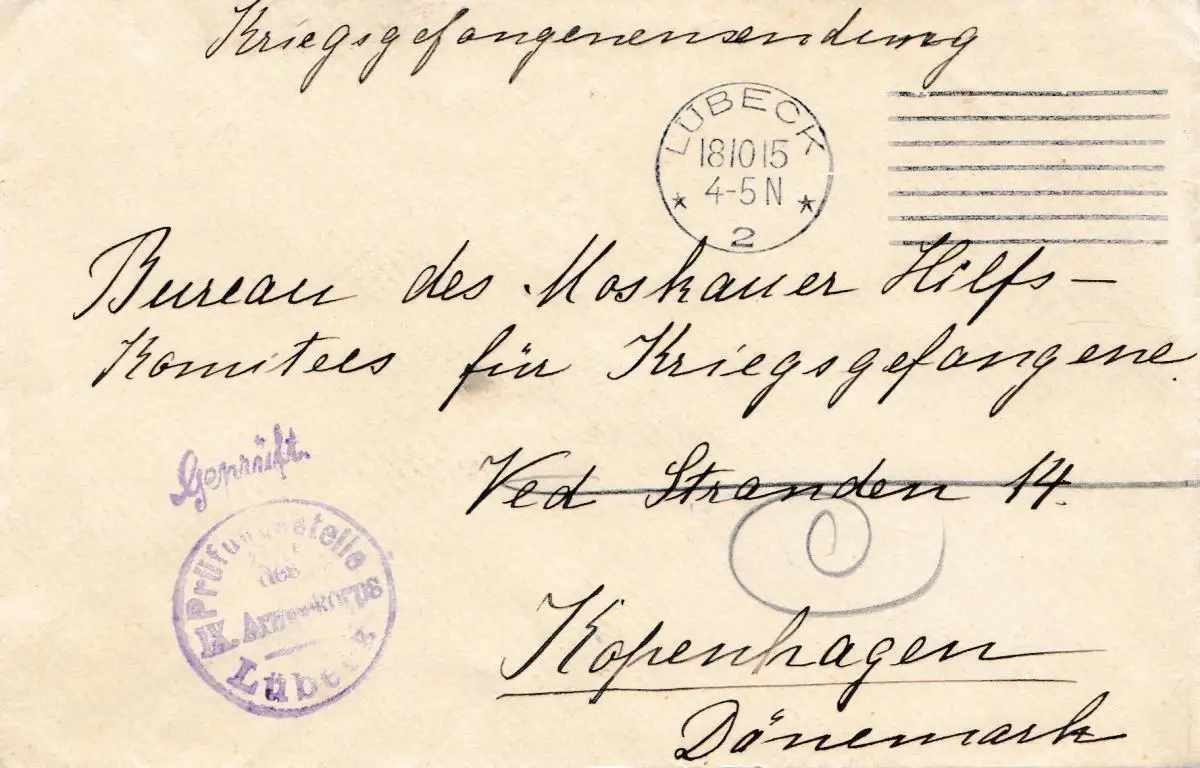 Kriegsgefangenensendung
LÜBECK
18 10 15
4-5 N
2
Bureau des Moskauer Hilfs-
Komitees für Kriegsgefangene.
Ved Stranden 14.
Geprüft.
Prüfungsstelle
des
IX. Armeekorps
Lübeck
Kopenhagen
Dänemark